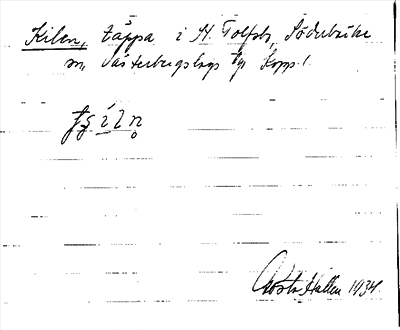 Kilen, täppa i St. Tolfsbo, Söderbärke
sn, Västerbergslags Kopp. l.
Gösta Hallén 1934.